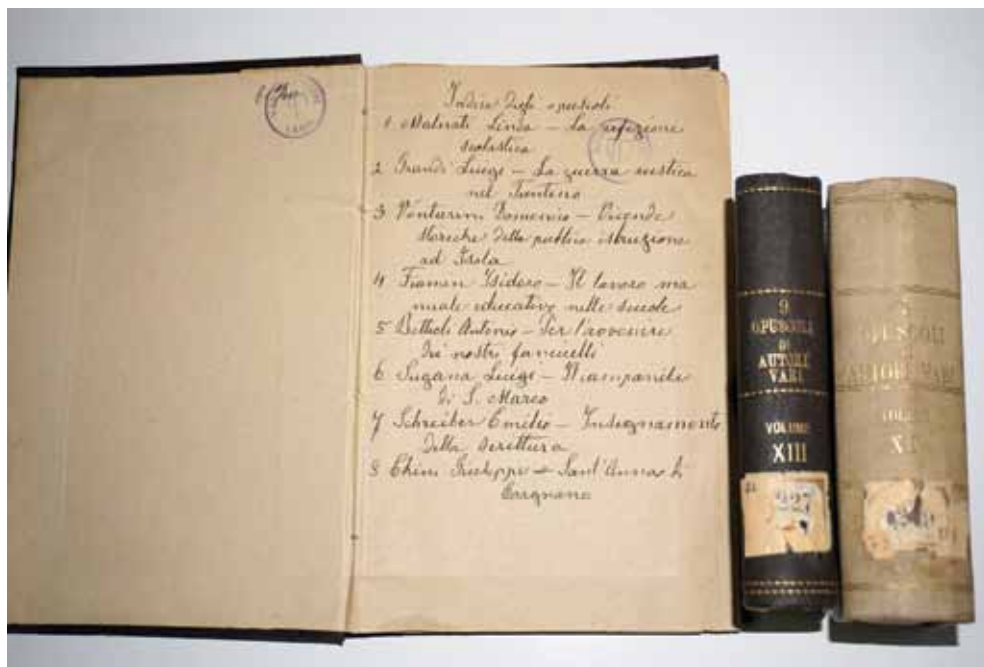 Indice degli opuscoli
1 Malnati Linda – La refezione
scolastica
2 Grandi Luigi – La guerra rustica
nel Trentino
3 Vonturini Domenico – Vicende
storiche della publica istruzione
ad Isola
4 Fiamin Isidoro – Il lavoro ma
nuale educativo nelle scuole
5 Bettioli Antonio – Per l'avvenire
dei nostri fanciulli
6 Sugana Luigi – Il campanile
di S. Marco
7 Schreiber Emilio – Insegnamento
della Scrittura
8 Chini Giuseppe – Sant'Anna di
9
OPUSCOLI
DI
AUTORI
VARI
VOLUME
XIII
227
OPUSCOLI
AUTORI VARI